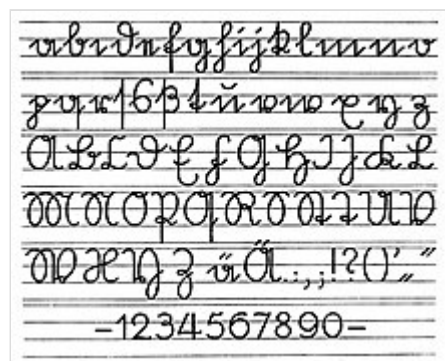 a b c d e f g h i j k l m n o
p q r ſ s ß t u v w x y z
A B C D E F G H I J K L
M N O P Q R S T U V
W X Y Z ü Ä . : , ; ! ? ( ) ' „ “
-1234567890-